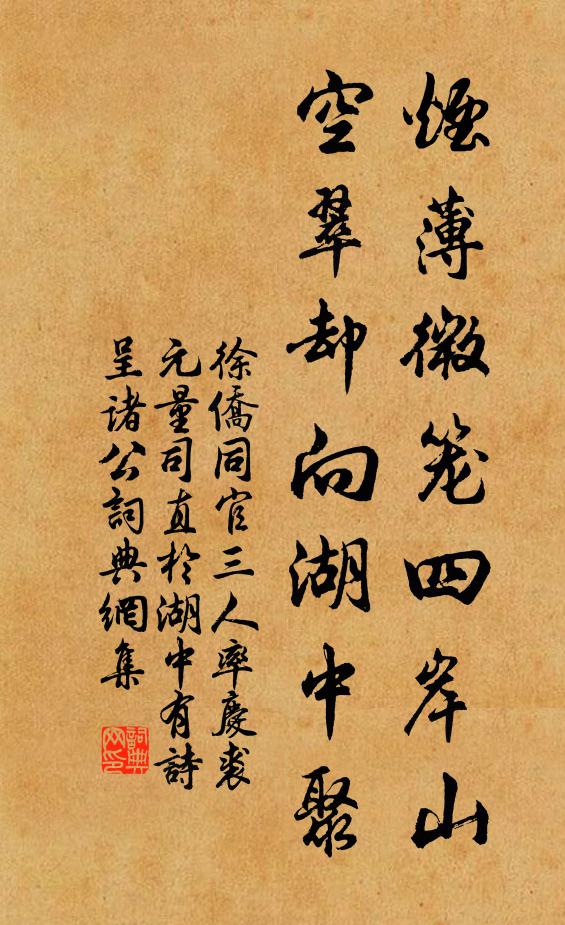 煙薄微笼四岸山
空翠却向湖中聚
徐僑同官三人率慶裘
元量司直於湖中有詩
呈诸公詞典網集
詞典网印